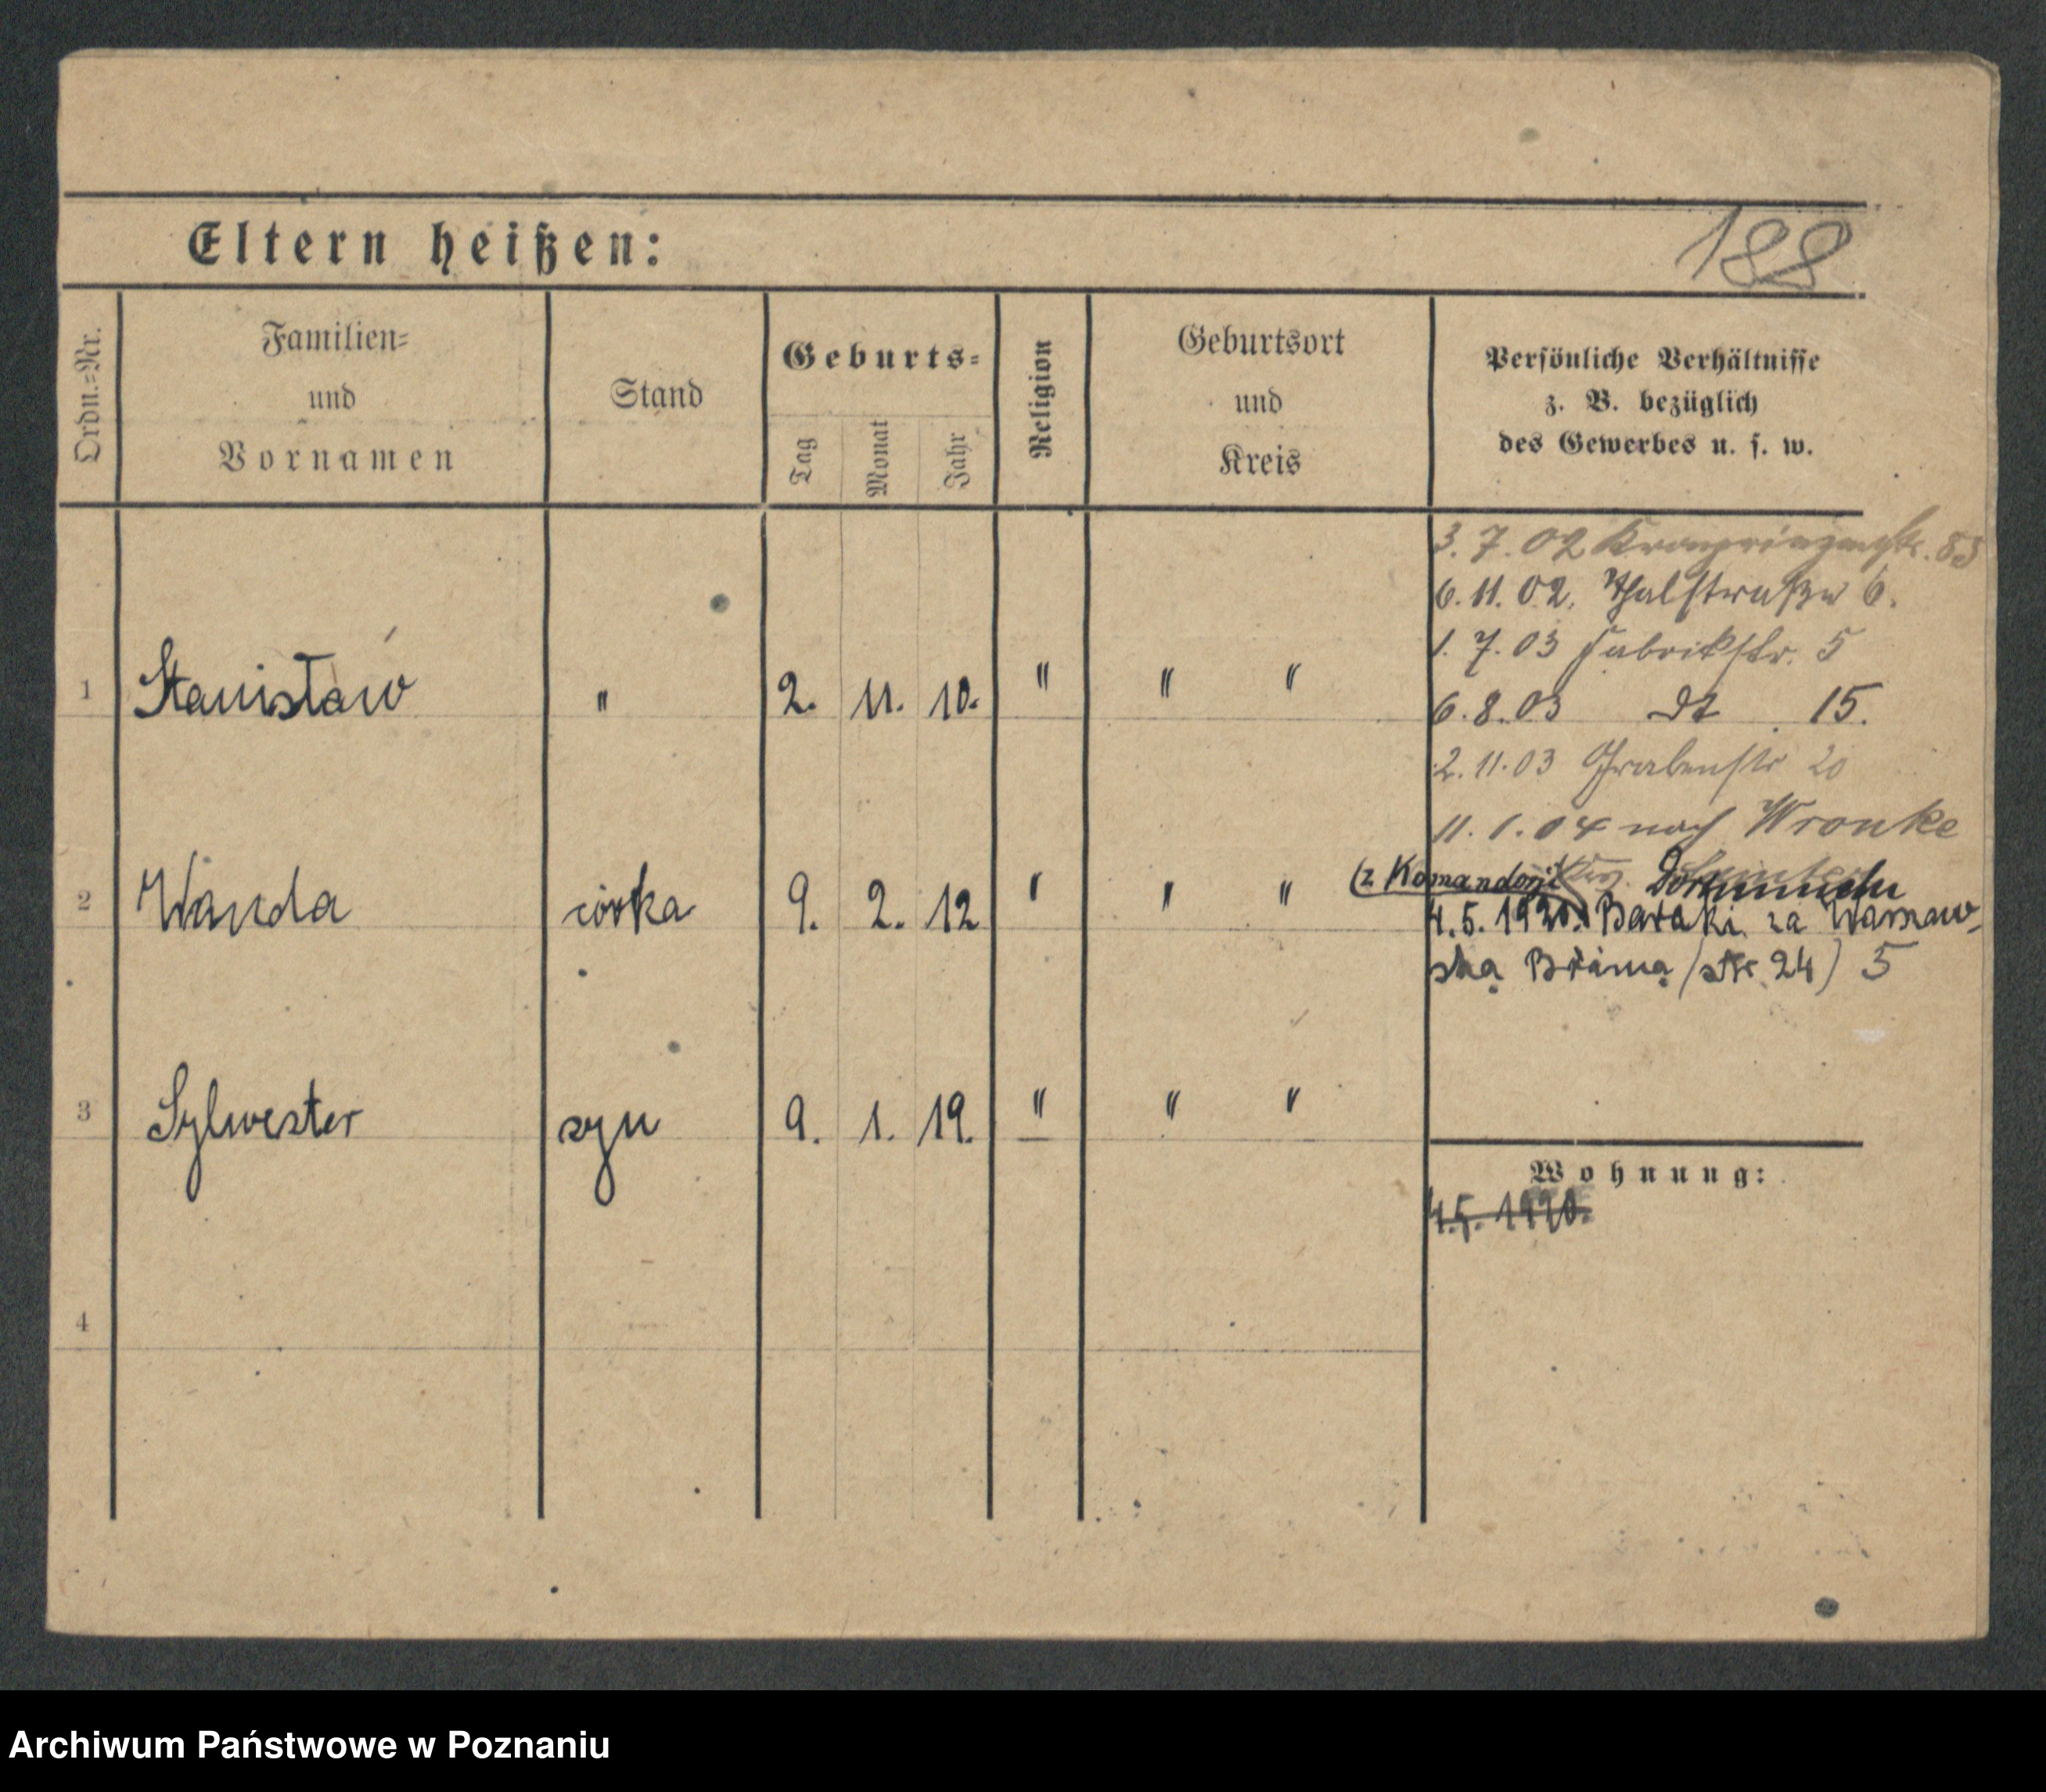 188
Eltern heißen:
Ordn.=Nr.
Familien=
und
Vornamen
Stand
Geburts=
Tag
Monat
Jahr
Religion
Geburtsort
und
Kreis
Persönliche Verhältnisse
z. B. bezüglich
des Gewerbes u. s. w.
3. 7. 02 Kronprinzenstr. 83
6. 11. 02. Thalstraße 6.
1. 7. 03 Fabrikstr. 5
1 Stanisław " 2. 11. 10. " " "
6. 8. 03 dt 15.
2. 11. 03 Grabenstr 20
11. 1. 04 nach Wronke
(z Komandorji
2 Wanda córka 9. 2. 12 " " "
4. 5. 1920. Baraki za Warszaw-
ską Bramą (str. 24) 5
3 Sylwester syn 9. 1. 19. " " "
Wohnung:
4.5. 1920.
4
Archiwum Państwowe w Poznaniu